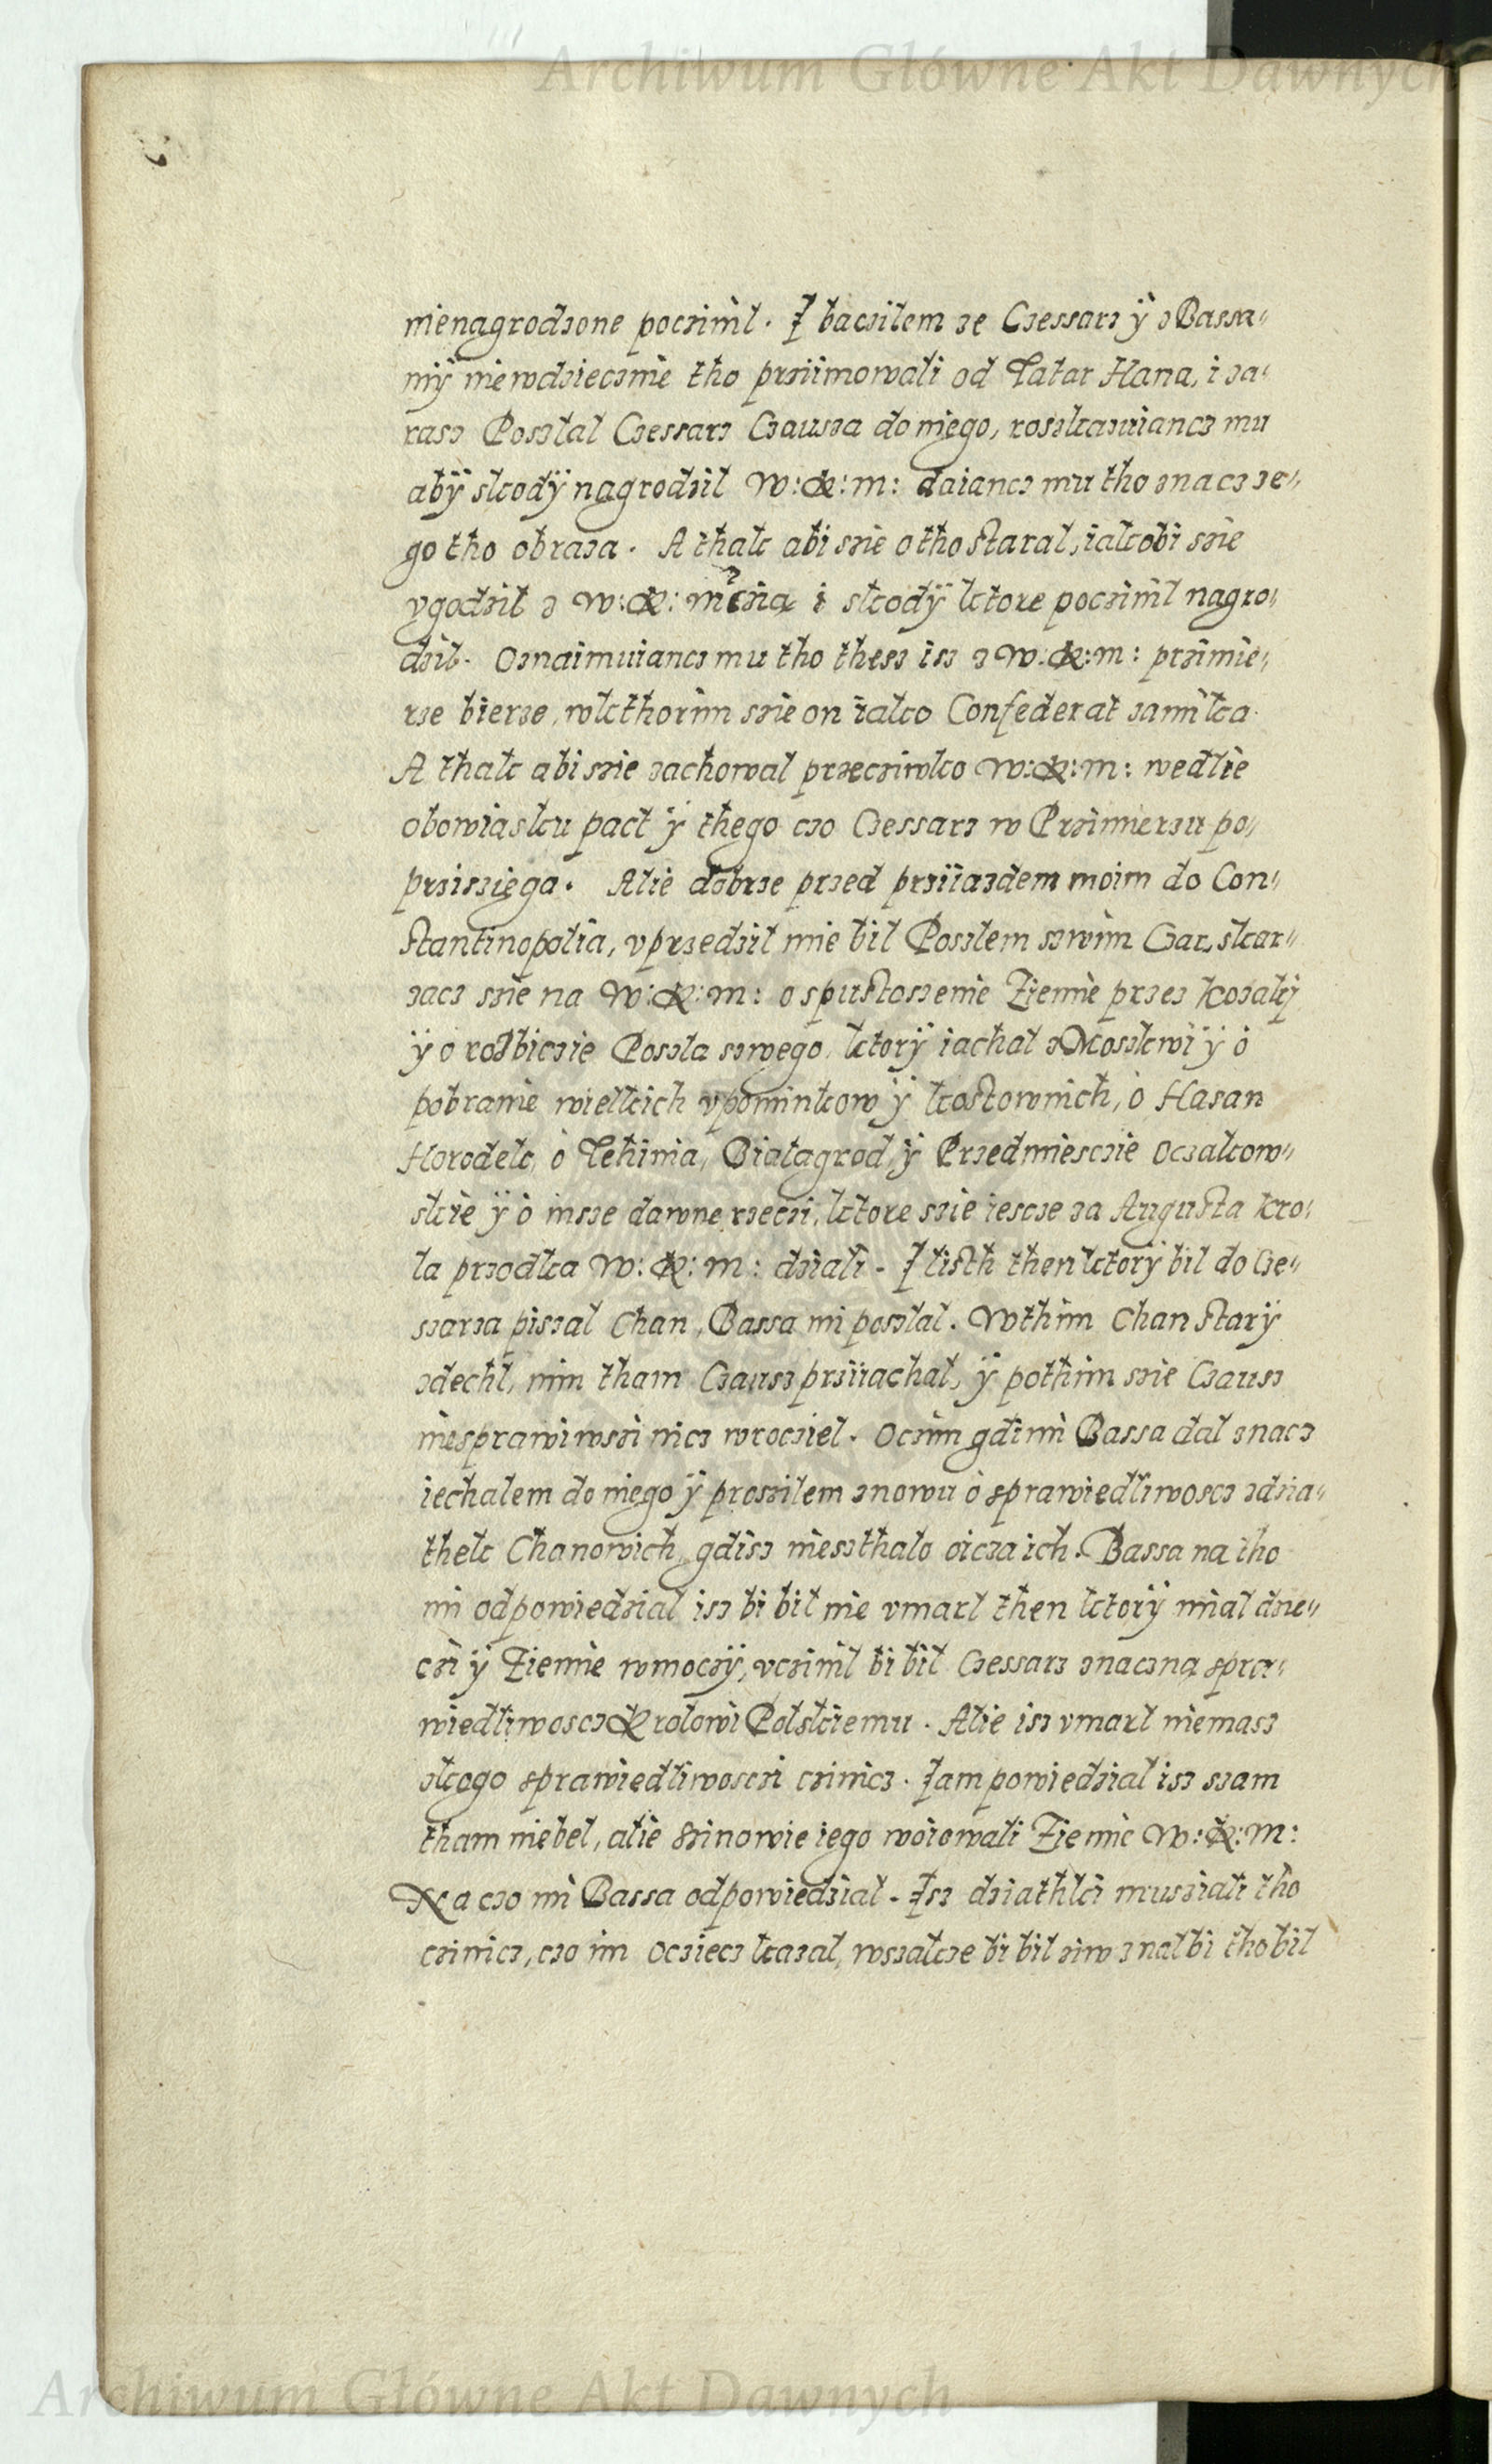 Archiwum Główne Akt Dawnych
nienagrodzone poczinil. I baczilem ze Czessarz ÿ z Bassa⸗
mÿ niewdziecznie tho prziimowali od Tatar Hana, i za⸗
rasz Poszlal Czessarz Czausza do niego, roszkazuiancz mu
abÿ skodÿ nagrodził W: K: m: daiancz mu tho znacz ze⸗
go tho obraza. A thak abi szie o tho staral, iakobi szie
vgodzil z W: K: mczią i skodÿ ktore poczinil nagro⸗
dzil. Oznaimuiancz mu tho thesz isz z W: K: m: przimie⸗
rze bierze, wkthorim szie on iako Confederat zamika.
A thak abi szie zachowal przecziwko W: K: m: wedlie
obowiasku pact ÿ thego czo Czessarz w Przimierzu po⸗
przisziega. Alie dobrze przed prziiazdem moim do Con⸗
stantinopolia, vprzedzil mie bil Poszlem szwim Czar, skar⸗
zacz szie na W: K: m: o spustoszenie Ziemie przez kozaki
ÿ o rozbiczie Poszla szwego, ktorÿ iachal z Moszkwi ÿ o
pobranie wielkich vpominkow ÿ kostownich, o Hasan
Horodek, o Tehinia, Bialagrod, ÿ Przedmiesczie Oczakow⸗
skie ÿ o insze dawne rzeczi, ktore szie iescze za Augusta kro⸗
la przodka W: K: m: dziali. I listh then ktorÿ bil do Cze⸗
szarza piszal Chan, Bassa mi poszlal. Wthim Chan starÿ
zdechl, nim tham Czausz prziiachal, ÿ pothim szie Czausz
niesprawiwszi nicz wrocziel. Oczim gdi mi Bassa dal znacz
iechalem do niego ÿ prosziłem znowu o sprawiedliwoscz zdzia⸗
thek Chanowich, gdisz nieszthalo oicza ich. Bassa na tho
mi odpowiedzial isz bi bil nie vmarl then ktorÿ mial dzie⸗
czi ÿ Ziemie wmoczÿ, vczinil bi bil Czessarz znaczna spra⸗
wiedliwoscz Krolowi Polskiemu. Alie isz vmarl niemasz
zkogo sprawiedliwosczi czinicz. Jam powiedzial isz szam
tham niebel, alie szinowie iego woiowali Ziemie W: K: m:
Na czo mi Bassa odpowiedzial. Isz dziathki musziali tho
czinicz, czo im Ocziecz kazal, wszakze bi bil ziw znal bi tho bil
Archiwum Główne Akt Dawnych